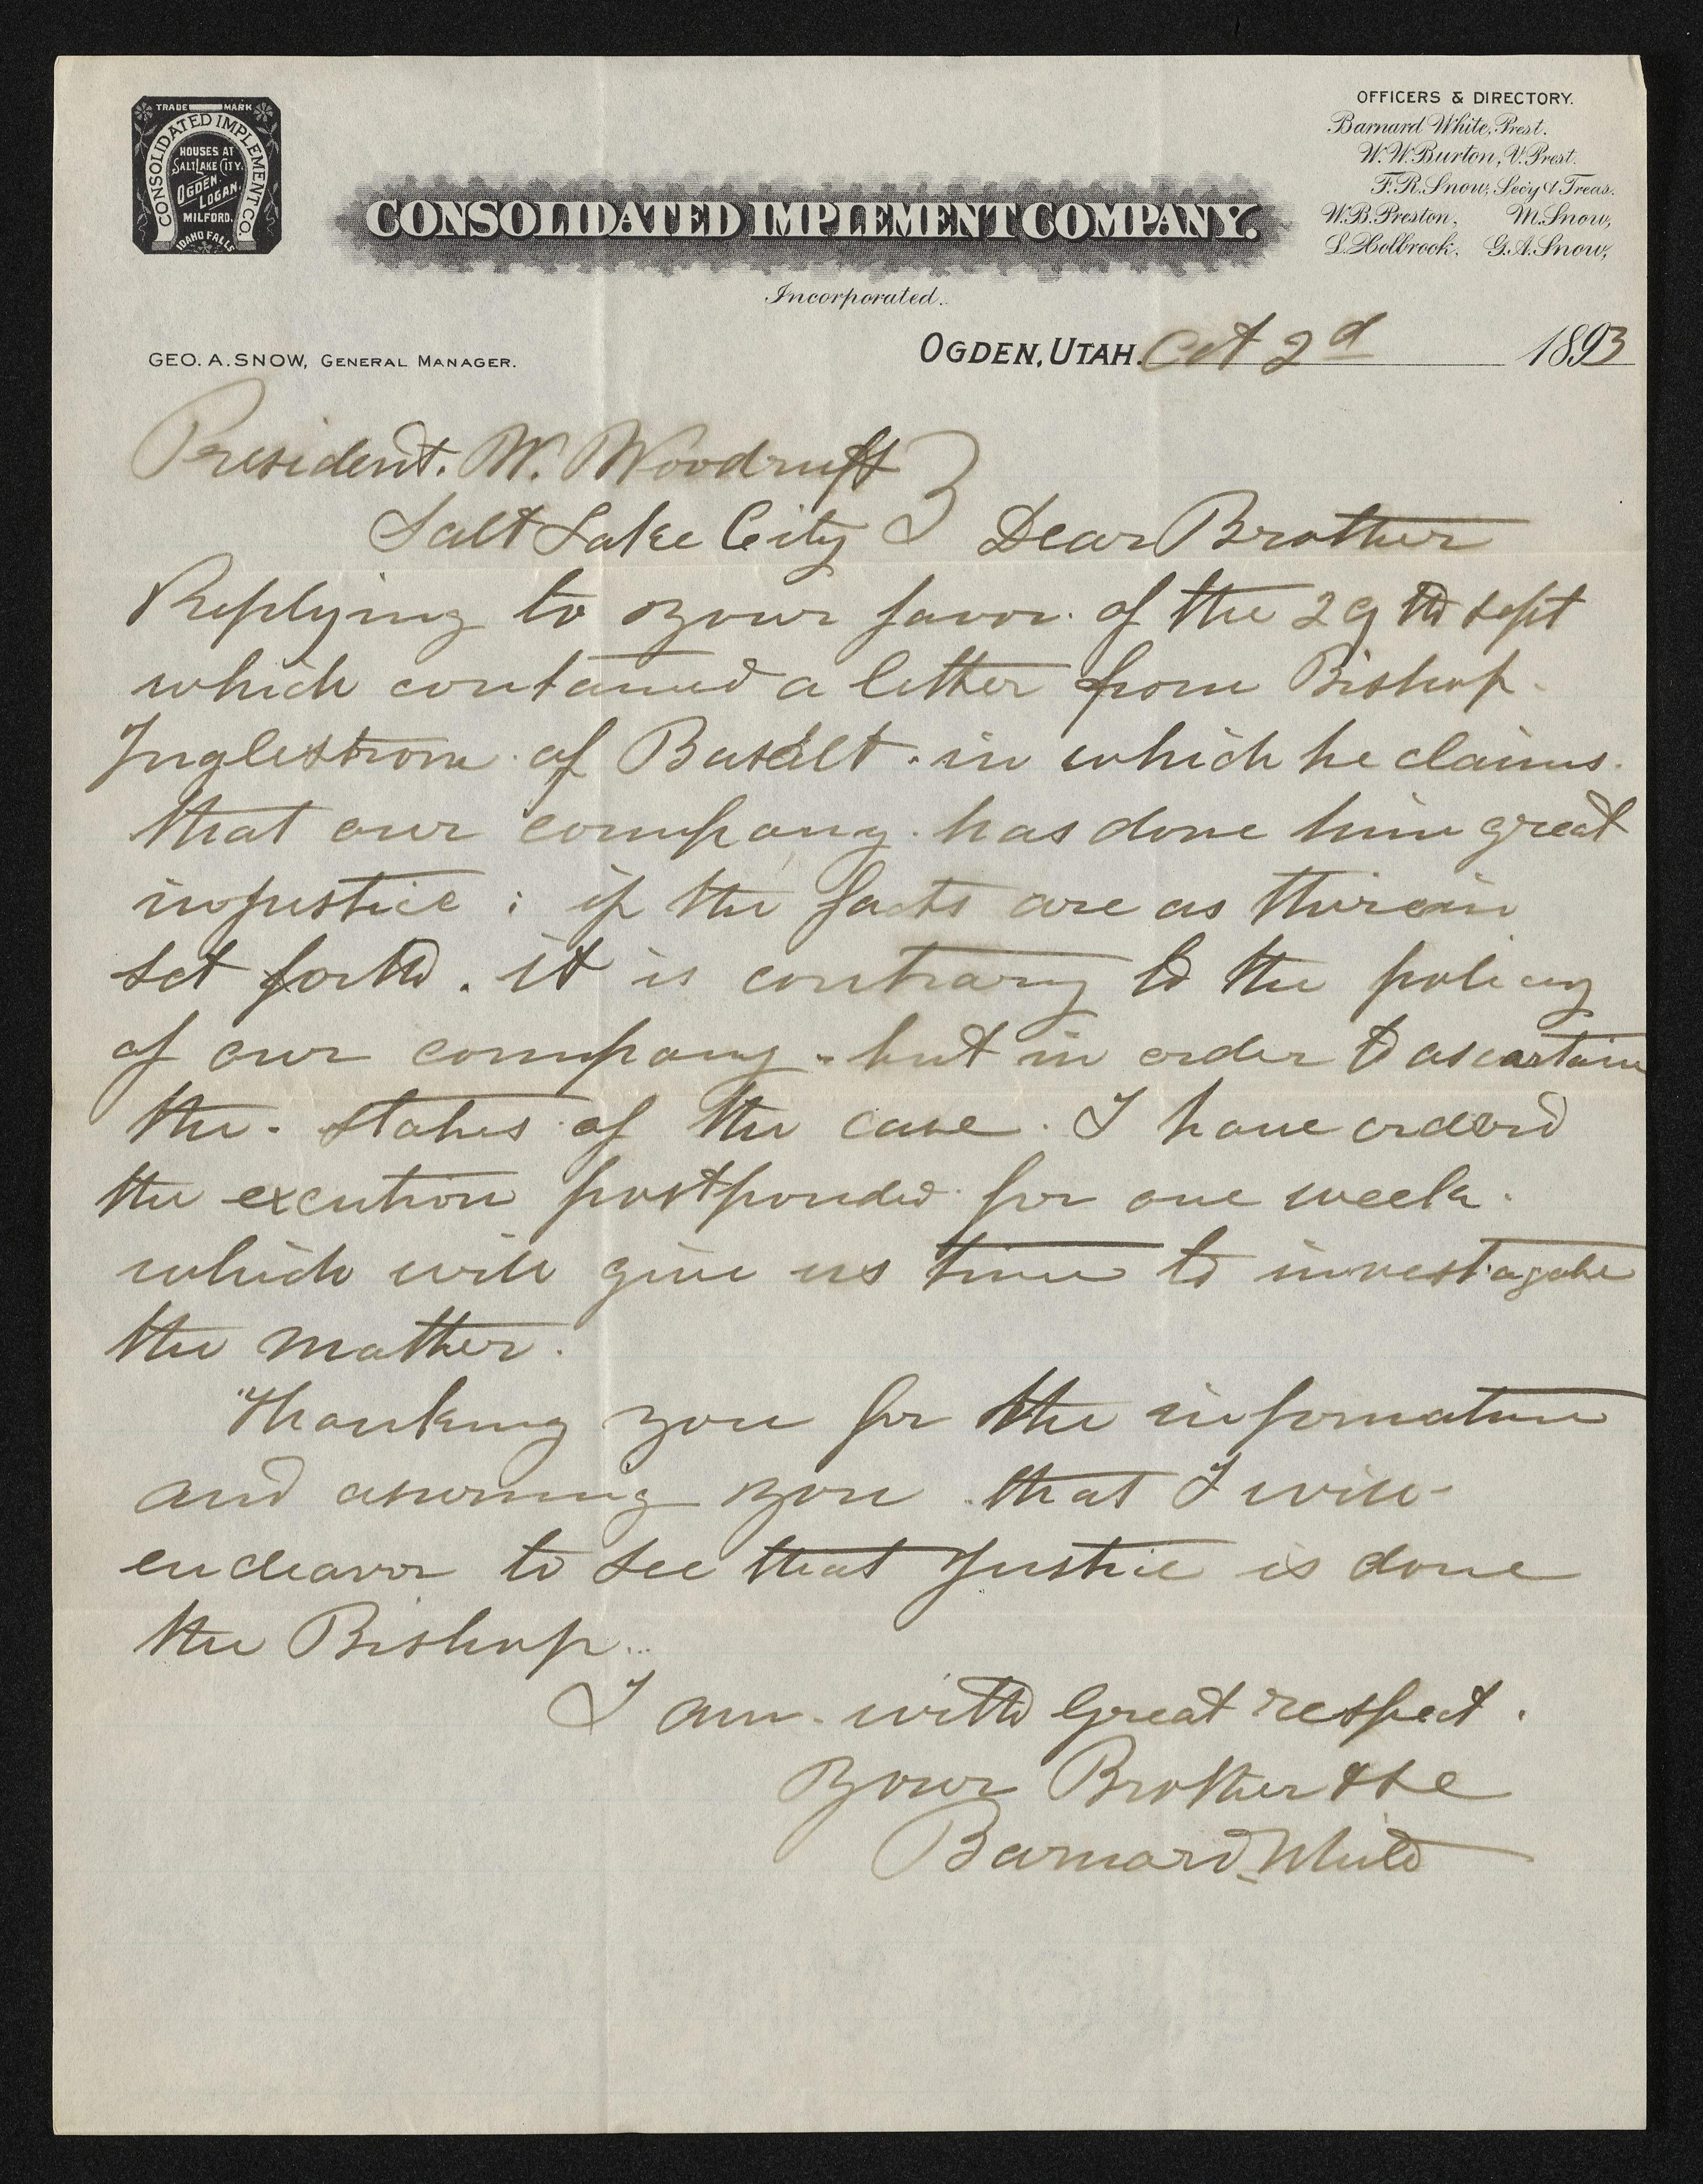 TRADE MARK
CONSOLIDATED IMPLEMENT CO.
HOUSES AT
SALT LAKE CITY.
OGDEN.
LOGAN.
MILFORD.
IDAHO FALLS
OFFICERS & DIRECTORY.
Barnard White, Prest.
W. W. Burton, V. Prest.
F. R. Snow, Secy & Treas.
W. B. Preston. M. Snow,
L. Holbrook. G. A. Snow,
CONSOLIDATED IMPLEMENT COMPANY.
Incorporated.
GEO. A. SNOW, GENERAL MANAGER.
OGDEN, UTAH. Oct 2d 1893
President. W. Woodruff
Salt Lake City } Dear Brother
Replying to your favor. of the 29th sept
which contained a letter from Bishop.
Inglestrom. of Basalt. in which he claims.
that our company. has done him great
injustice; if the facts are as therein
set forth. it is contrary to the policy
of our company. but in order to ascartain
the. states of the case. I have orderd
the excution postponded for one week.
which will give us time to investagate
the matter.
Thanking you for the information
and assuring you that I will
endeavor to see that Justice is done
the Bishop.
I am. with great respect.
Your Brother &c
Barnard White